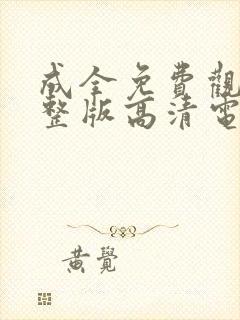 成全免費觀
整版高清電
黃覺